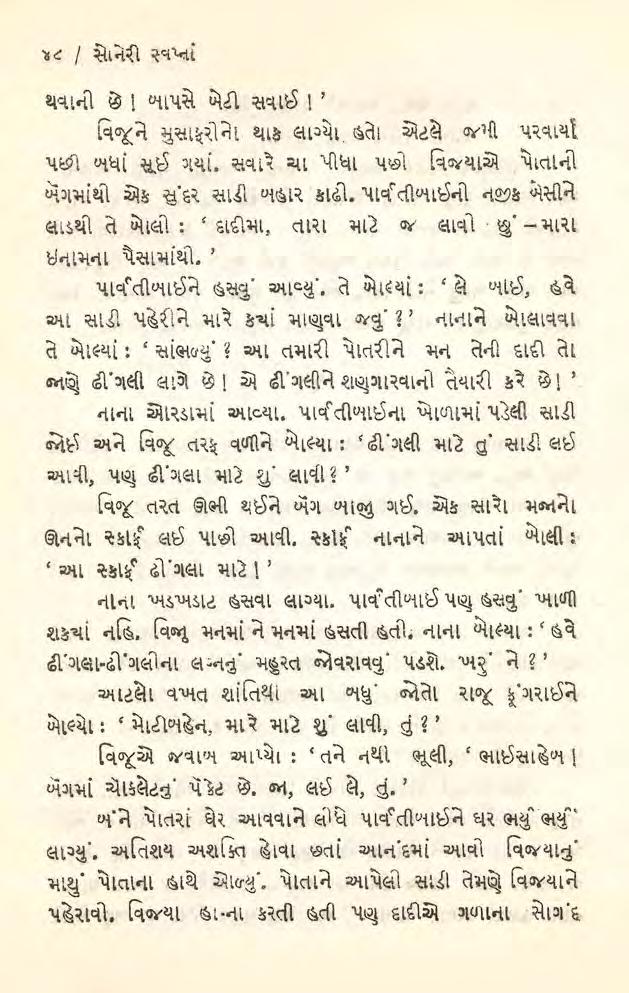 ૪૮ / સોનેરી સ્વપ્નાં
થવાની છે ! બાપસે બેટી સવાઈ ! ’
વિજૂને મુસાફરીનો થાક લાગ્યો હતો એટલે જમી પરવાર્યા
પછી બધાં સૂઈ ગયાં. સવારે ચા પીધા પછી વિજયાએ પોતાની
બૅગમાંથી એક સુંદર સાડી બહાર કાઢી. પાર્વતીબાઈની નજીક બેસીને
લાડથી તે બોલી : ‘ દાદીમા, તારા માટે જ લાવી છું – મારા
ઇનામના પૈસામાંથી. ’
પાર્વતીબાઈને હસવું આવ્યું. તે બોલ્યાં : ‘ લે બાઈ, હવે
આ સાડી પહેરીને મારે ક્યાં માણવા જવું ? ’ નાનાને બોલાવવા
તે બોલ્યાં : ‘ સાંભળ્યું ? આ તમારી પોતરીને મન તેની દાદી તો
જાણે ઢીંગલી લાગે છે ! એ ઢીંગલીને શણગારવાની તૈયારી કરે છે ! ’
નાના ઓરડામાં આવ્યા. પાર્વતીબાઈના ખોળામાં પડેલી સાડી
જોઈ અને વિજૂ તરફ વળીને બોલ્યા : ‘ ઢીંગલી માટે તું સાડી લઈ
આવી, પણ ઢીંગલા માટે શું લાવી ? ’
વિજૂ તરત ઊભી થઈને બૅગ બાજુ ગઈ. એક સારો મજાનો
ઊનનો સ્કાર્ફ લઈ પાછી આવી. સ્કાર્ફ નાનાને આપતાં બોલી :
‘ આ સ્કાર્ફ ઢીંગલા માટે ! ’
નાના ખડખડાટ હસવા લાગ્યા. પાર્વતીબાઈ પણ હસવું ખાળી
શક્યાં નહિ. વિજુ મનમાં ને મનમાં હસતી હતી. નાના બોલ્યા : ‘ હવે
ઢીંગલા-ઢીંગલીના લગ્નનું મહુરત જોવરાવવું પડશે. ખરું ને ? ’
આટલો વખત શાંતિથી આ બધું જોતો રાજૂ ફૂંગરાઈને
બોલ્યો : ‘ મોટીબહેન, મારે માટે શું લાવી, તું ? ’
વિજૂએ જવાબ આપ્યો : ‘ તને નથી ભૂલી, ‘ ભાઈસાહેબ !
બૅગમાં ચૉકલેટનું પૅકેટ છે. જા, લઈ લે, તું. ’
બંને પોતરાં ઘેર આવવાને લીધે પાર્વતીબાઈને ઘર ભર્યું ભર્યું
લાગ્યું. અતિશય અશક્તિ હોવા છતાં આનંદમાં આવી વિજયાનું
માથું પોતાના હાથે ઓળ્યું. પોતાને આપેલી સાડી તેમણે વિજયાને
પહેરાવી. વિજયા હા-ના કરતી હતી પણ દાદીએ ગળાના સોગંદ